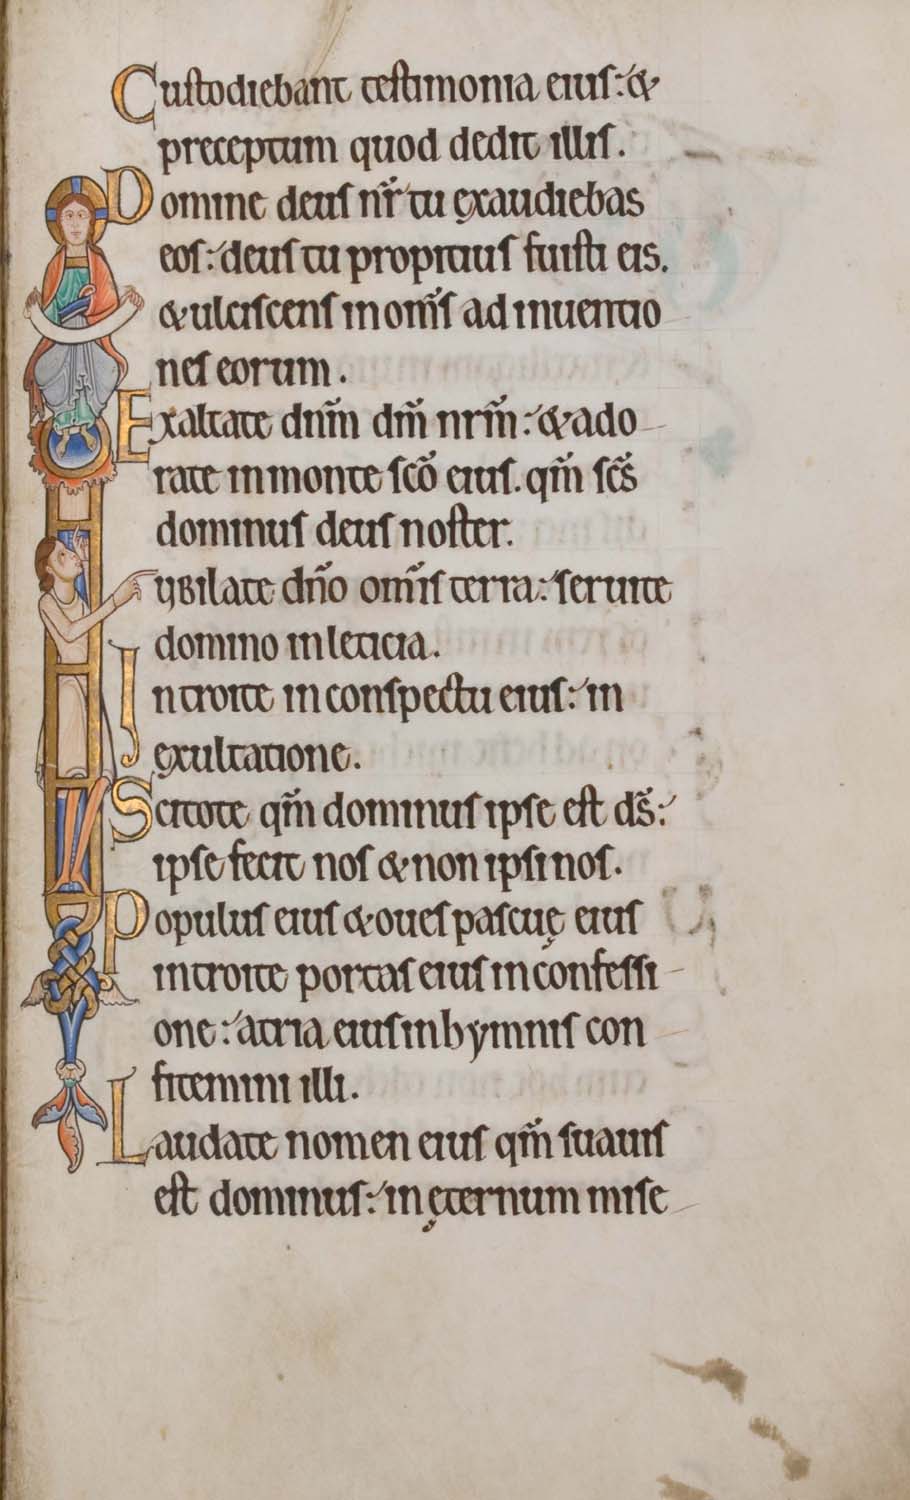 Cuſtodiebant teſtimonia eiuſ: &
preceptum quod dedit illiſ.
Domine deuſ nr̃ tu ęxaudiebas
eoſ: deuſ tu propitiuſ fuiſti eis.
& ulciſcenſ in om̃ſ ad inuentio
neſ eorum.
Exaltate dnm̃ dm̃ nrm̃: & ado
rate in monte ſcõ eiuſ. qm̃ ſcs̃
dominuſ deuſ noſter.
Iubilate dño om̃iſ terra: ſeruite
domino in leticia.
Introite in conſpectu eiuſ: in
ęxultatione.
Scitote qm̃ dominuſ ipſe eſt ds̃:
ipſe fecit noſ & non ipſi noſ.
Populuſ eiuſ & oueſ paſcuę eiuſ
introite portaſ eiuſ in confeſſi
one: atria eiuſ in hymniſ con
fitemini illi.
Laudate nomen eiuſ qm̃ ſuauiſ
eſt dominuſ: in ęternum miſe